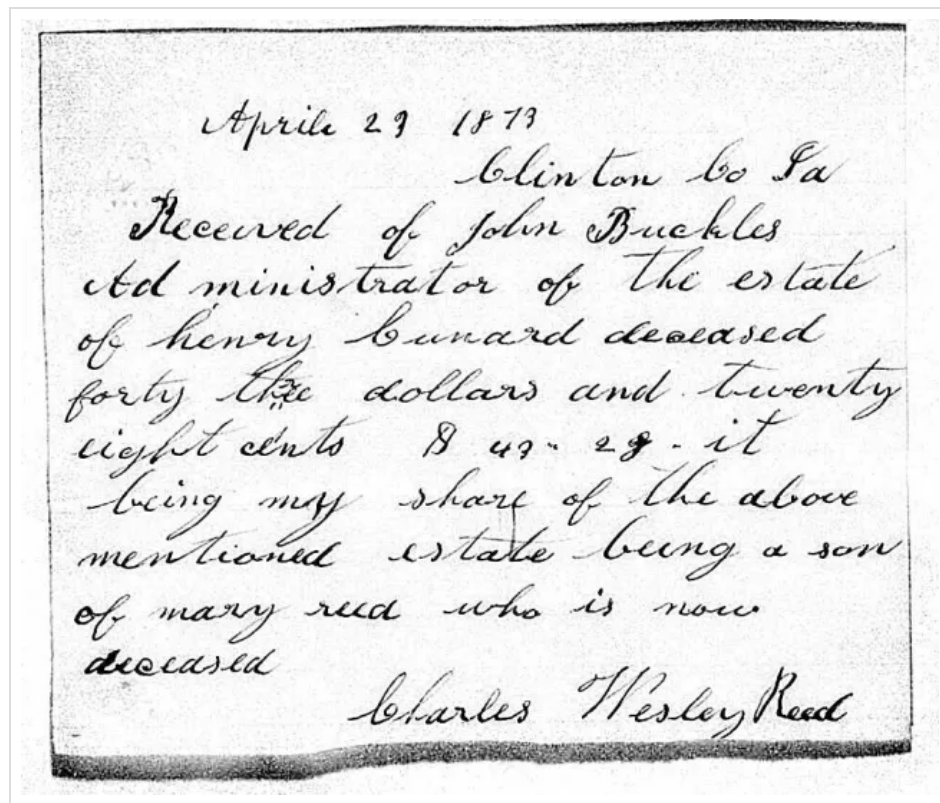 April 29 1873
Clinton Co Ia
Received of John Buckles
Administrator of the estate
of henry Cunard deceased
forty three dollars and twenty
eight cents $ 43-28- it
being my share of the above
mentioned estate being a son
of mary reed who is now
deceased
Charles Wesley Reed